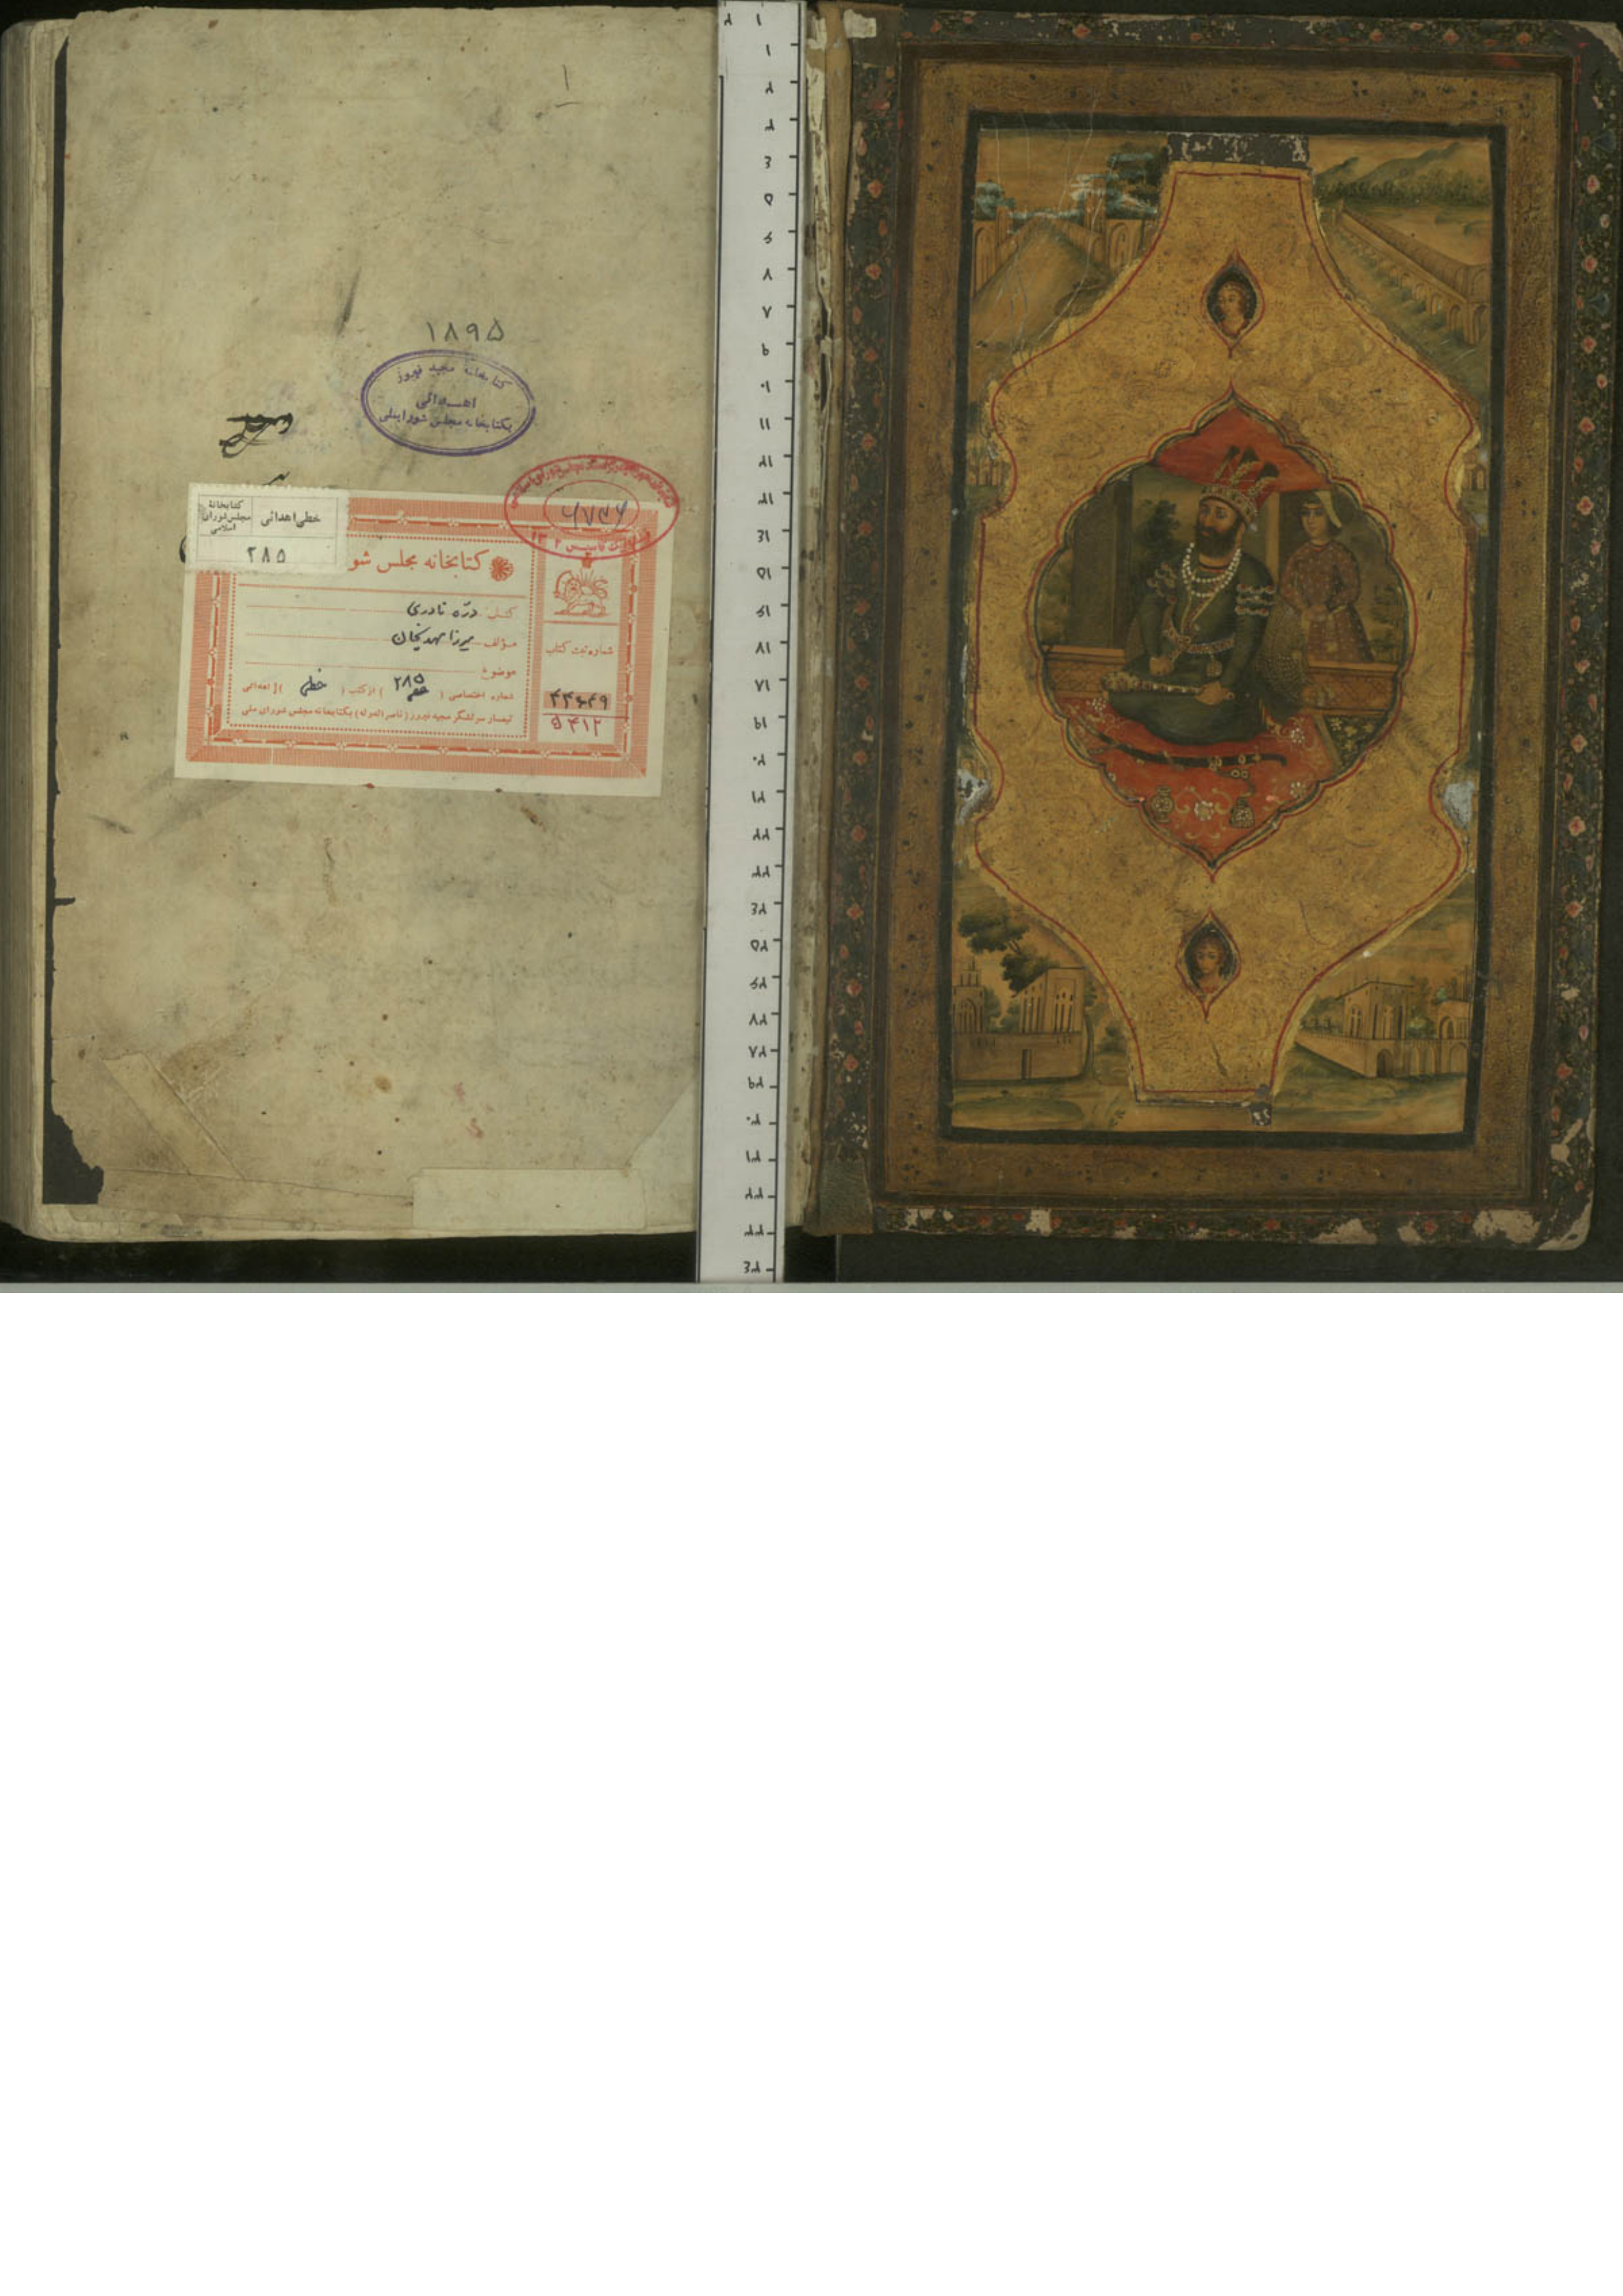 ۱
۱۸۹۵
کتابخانه مجید فیروز
اهدائی
بکتابخانه مجلس شورایملی
خطی اهدائی
کتابخانهٔ
مجلس شورای
اسلامی
۲۸۵
۱۳۰۲
کتابخانه مجلس شو
کتاب درّه نادری
مؤلف میرزا مهدیخان
موضوع
شماره اختصاصی ( ۲۸۵ ) از کتب ( خطی ) اهدائی
تیمسار سرلشگر مجید فیروز (ناصرالدوله) بکتابخانه مجلس شورای ملی
شماره ثبت کتاب
۵۴۱۲